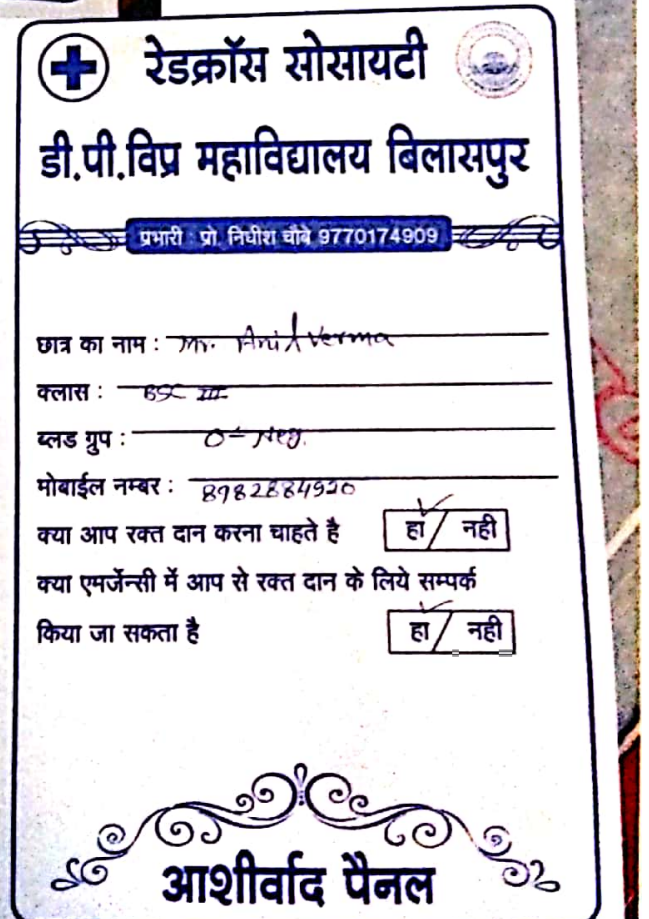 रेडक्रॉस सोसायटी
डी.पी.विप्र महाविद्यालय बिलासपुर
प्रभारी : प्रो. निधीश चौबे 9770174909
छात्र का नाम : Mr. Anil Verma
क्लास : BSC III
ब्लड ग्रुप : O- Neg.
मोबाईल नम्बर : 8982884920
क्या आप रक्त दान करना चाहते है हा / नही
क्या एमर्जेन्सी में आप से रक्त दान के लिये सम्पर्क
किया जा सकता है हा / नही
आशीर्वाद पैनल